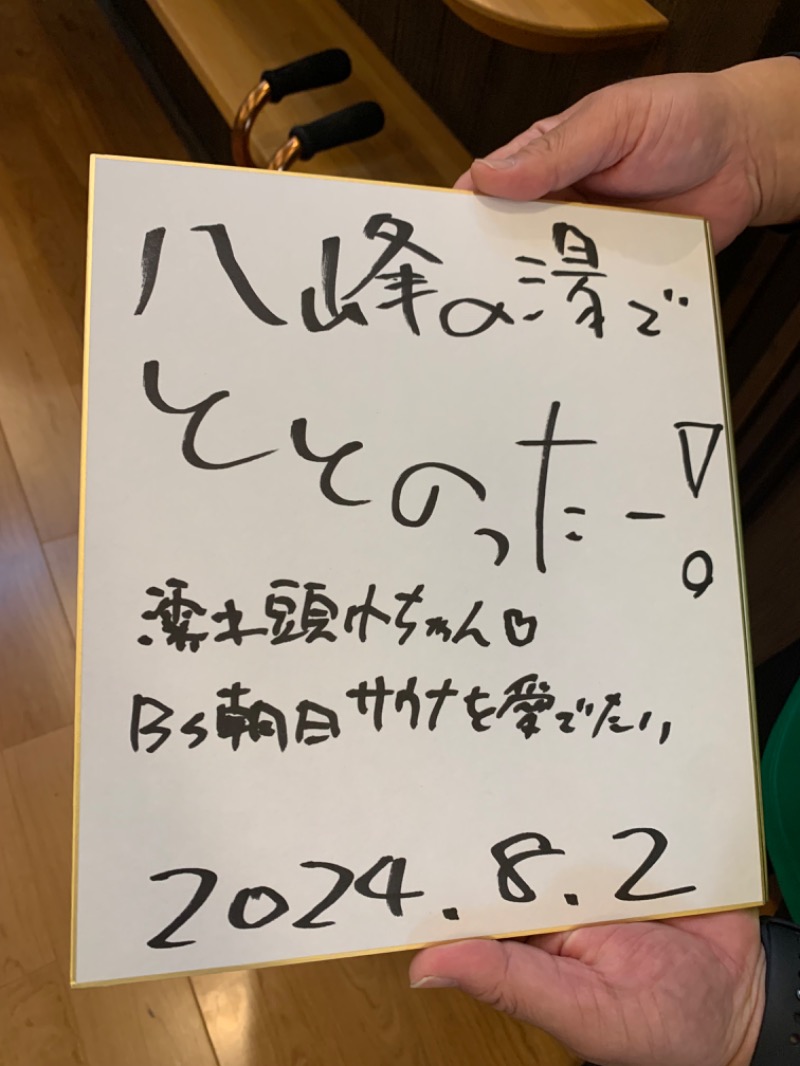 八峰の湯で
ととのったー!
濡れ頭巾ちゃん♡
BS朝日 サウナを愛でたい
2024.8.2